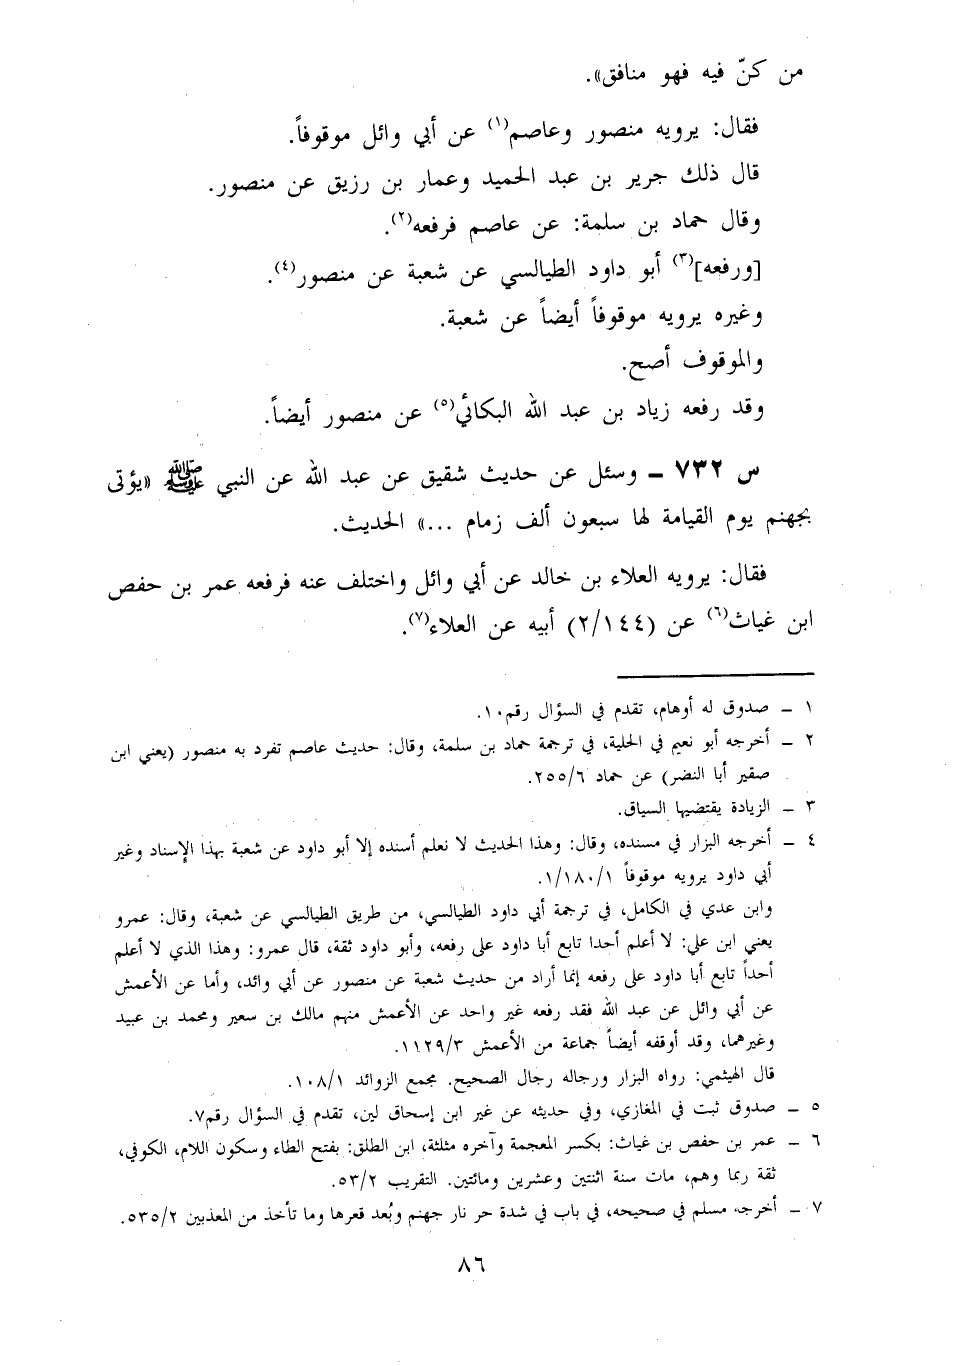 من كنّ فيه فهو منافق».
فقال: يرويه منصور وعاصم(١) عن أبي وائل موقوفاً.
قال ذلك جرير بن عبد الحميد وعمار بن رزيق عن منصور.
وقال حماد بن سلمة: عن عاصم فرفعه(٢).
[ورفعه](٣) أبو داود الطيالسي عن شعبة عن منصور(٤).
وغيره يرويه موقوفاً أيضاً عن شعبة.
والموقوف أصح.
وقد رفعه زياد بن عبد الله البكائي(٥) عن منصور أيضاً.
س ٧٣٢ ــ وسئل عن حديث شقيق عن عبد الله عن النبي ﷺ «يؤتى
بجهنم يوم القيامة لها سبعون ألف زمام ...» الحديث.
فقال: يرويه العلاء بن خالد عن أبي وائل واختلف عنه فرفعه عمر بن حفص
ابن غياث(٦) عن (٢/١٤٤) أبيه عن العلاء(٧).
١ ــ صدوق له أوهام، تقدم في السؤال رقم١٠.
٢ ــ أخرجه أبو نعيم في الحلية، في ترجمة حماد بن سلمة، وقال: حديث عاصم تفرد به منصور (يعني ابن
صقير أبا النضر) عن حماد ٢٥٥/٦.
٣ ــ الزيادة يقتضيها السياق.
٤ ــ أخرجه البزار في مسنده، وقال: وهذا الحديث لا نعلم أسنده إلا أبو داود عن شعبة بهذا الإسناد وغير
أبي داود يرويه موقوفاً ١/١٨٠/١.
وابن عدي في الكامل، في ترجمة أبي داود الطيالسي، من طريق الطيالسي عن شعبة، وقال: عمرو
يعني ابن علي: لا أعلم أحدا تابع أبا داود على رفعه، وأبو داود ثقة، قال عمرو: وهذا الذي لا أعلم
أحداً تابع أبا داود على رفعه إنما أراد من حديث شعبة عن منصور عن أبي وائد، وأما عن الأعمش
عن أبي وائل عن عبد الله فقد رفعه غير واحد عن الأعمش منهم مالك بن سعير ومحمد بن عبيد
وغيرهما، وقد أوقفه أيضاً جماعة من الأعمش ١١٢٩/٣.
قال الهيثمي: رواه البزار ورجاله رجال الصحيح. مجمع الزوائد ١٠٨/١.
٥ ــ صدوق ثبت في المغازي، وفي حديثه عن غير ابن إسحاق لين، تقدم في السؤال رقم٧.
٦ ــ عمر بن حفص بن غياث: بكسر المعجمة وآخره مثلثة، ابن الطلق: بفتح الطاء وسكون اللام، الكوفي،
ثقة ربما وهم، مات سنة اثنتين وعشرين ومائتين. التقريب ٥٣/٢.
٧ ــ أخرجه مسلم في صحيحه، في باب في شدة حر نار جهنم وبُعد قعرها وما تأخذ من المعذبين ٥٣٥/٢.
٨٦